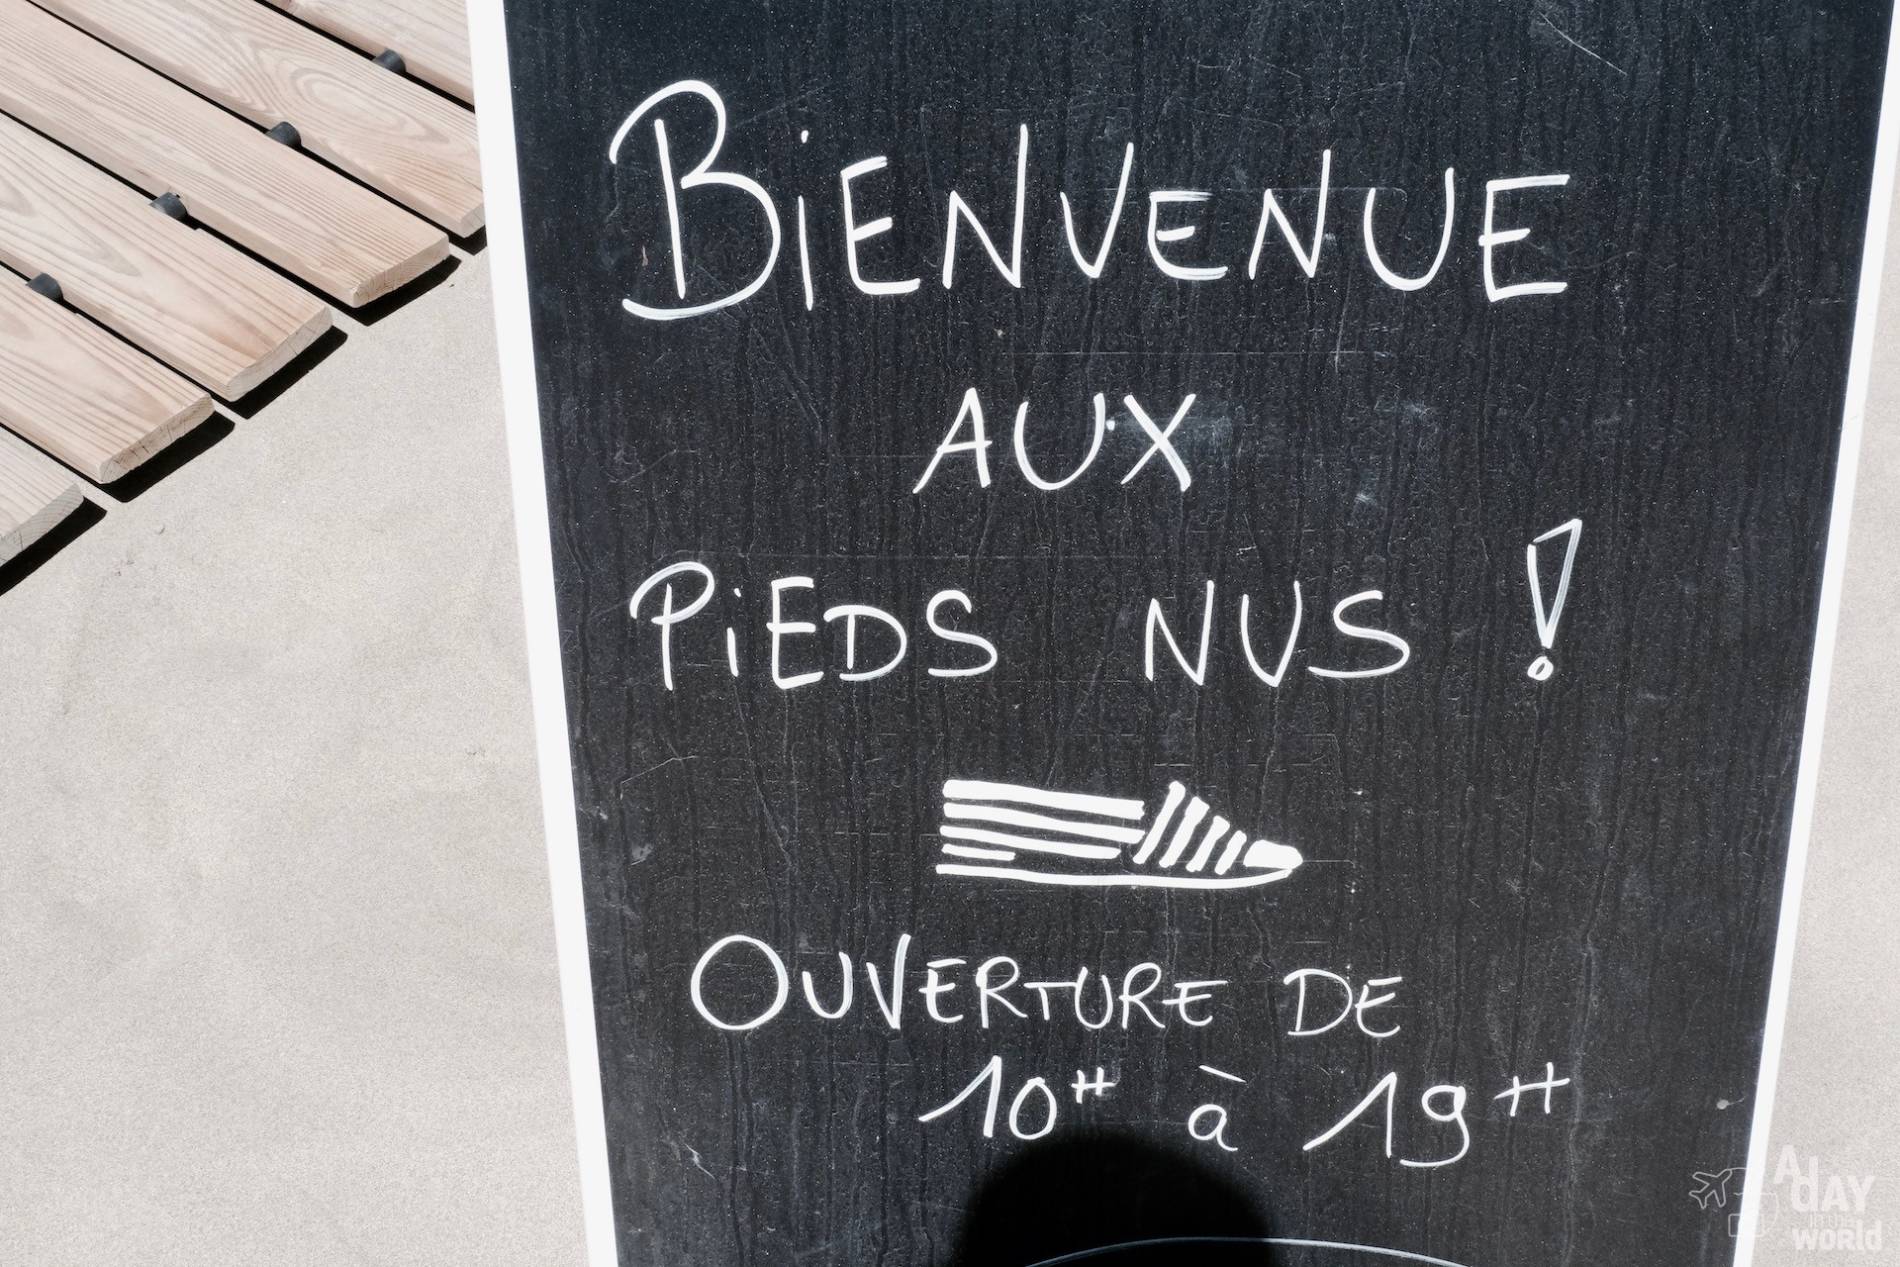 BiENVENUE
AUX
PiEDS NUS !
OUVERTURE DE
10H à 19H
A dAY
in the
world